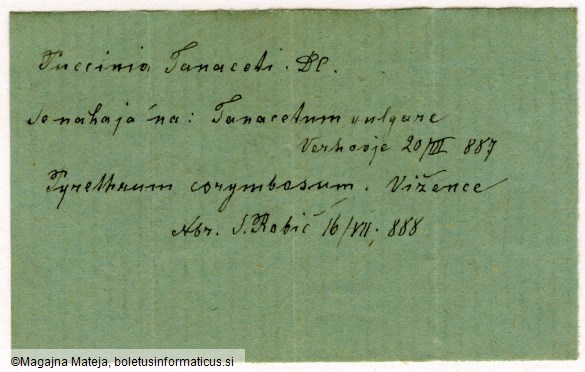 Puccinia Tanaceti. DC.
se nahaja na: Tanacetum vulgare
Verhovje 20/III 887
Pyrethrum corymbosum. Vižence
Nbr. S. Robič 16/VII. 888
©Magajna Mateja, boletusinformaticus.si